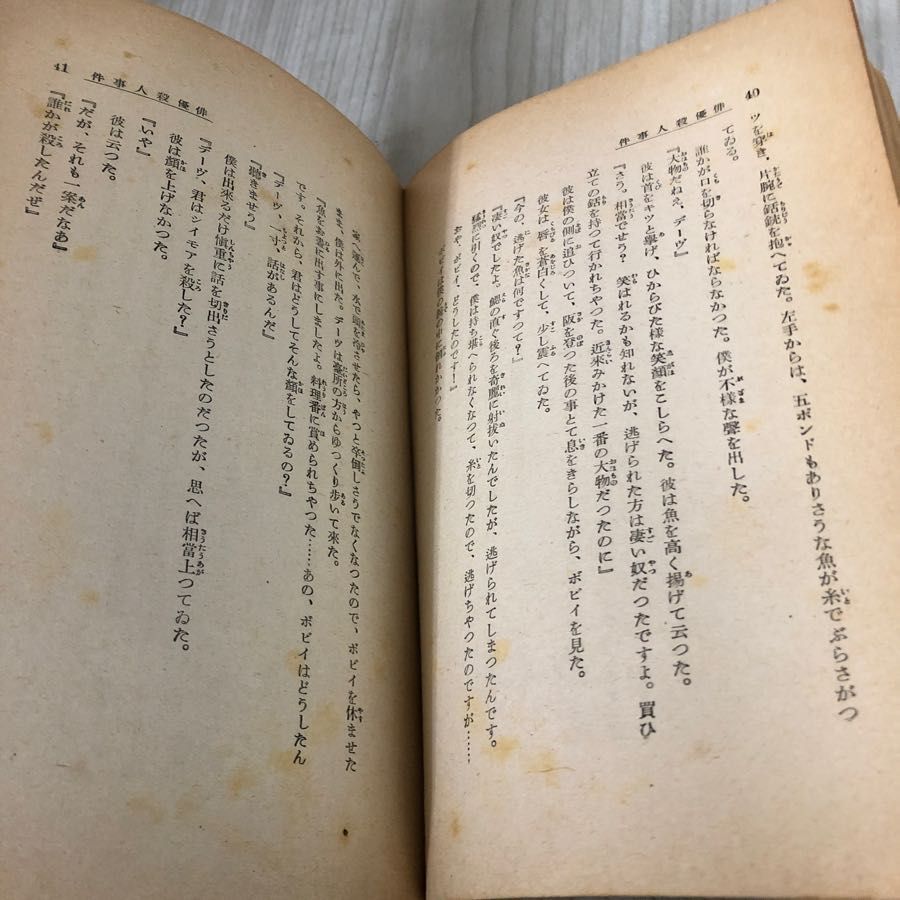 40
俳優殺人事件
ツを穿き、片腕に銛銃を抱へてゐた。左手からは、五ポンドもありさうな魚が糸でぶらさがつ
てゐる。
誰かが口を切らなければならなかつた。僕が不様な聲を出した。
『大物だねえ、デーヴ』
彼は首をキツと擧げ、ひからびた様な笑顔をこしらへた。彼は魚を高く揚げて云つた。
『さう。相當でせう？　笑はれるかも知れないが、逃げられた方は凄い奴だつたですよ。買ひ
立ての銛を持つて行かれちやつた。近来みかけた一番の大物だつたのに』
彼女は僕の側に追ひついて、阪を登つた後の事とて息をきらしながら、ボビイを見た。
彼女は、唇を蒼白くして、少し震へてゐた。
『今の、逃げた魚は何ですつて？』
『凄い奴でしたよ。鰓の直ぐ後ろを奇麗に射拔いたんでしたが、逃げられてしまつたんです。
猛烈に引くので、僕は持ち堪へられなくなつて、糸を切つたので、逃げちやつたのですが……
おや、ボビイ、どうしたのです！』
ボビイは僕の腕の中に倒れかかつた。
41
俳優殺人事件
家へ運んで、水で頭を冷させたら、やつと卒倒しさうでなくなつたので、ボビイを休ませた
まま、僕は外に出た。デーヴは臺所の方からゆつくり歩いて來た。
『魚をお晝に出す事にしましたよ。料理番に賞められちやつた……あの、ボビイはどうしたん
です。それから、君はどうしてそんな顔をしてゐるの？』
『デーヴ、一寸、話があるんだ』
『聽きませう』
僕は出來るだけ愼重に話を切出さうとしたのだつたが、思へば相當上つてゐた。
『デーヴ、君はシイモアを殺した？』
彼は顔を上げなかつた。
『いや』
彼は云つた。
『だが、それも一案だなあ』
『誰かが殺したんだぜ』